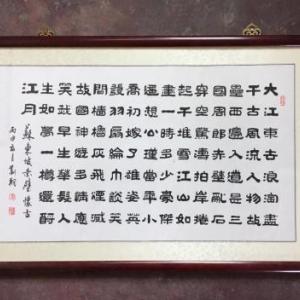 大江東去浪淘盡
千古風流人物故
壘西邊人道是三
國周郎赤壁亂石
穿空驚濤拍岸捲
起千堆雪江山如
畫一時多少豪傑
遙想公瑾當年小
喬初嫁了雄姿英
發羽扇綸巾談笑
間檣櫓灰飛煙滅
故國神遊多情應
笑我早生華髮人
生如夢一樽還酹
江月
蘇東坡赤壁懷古
丙申